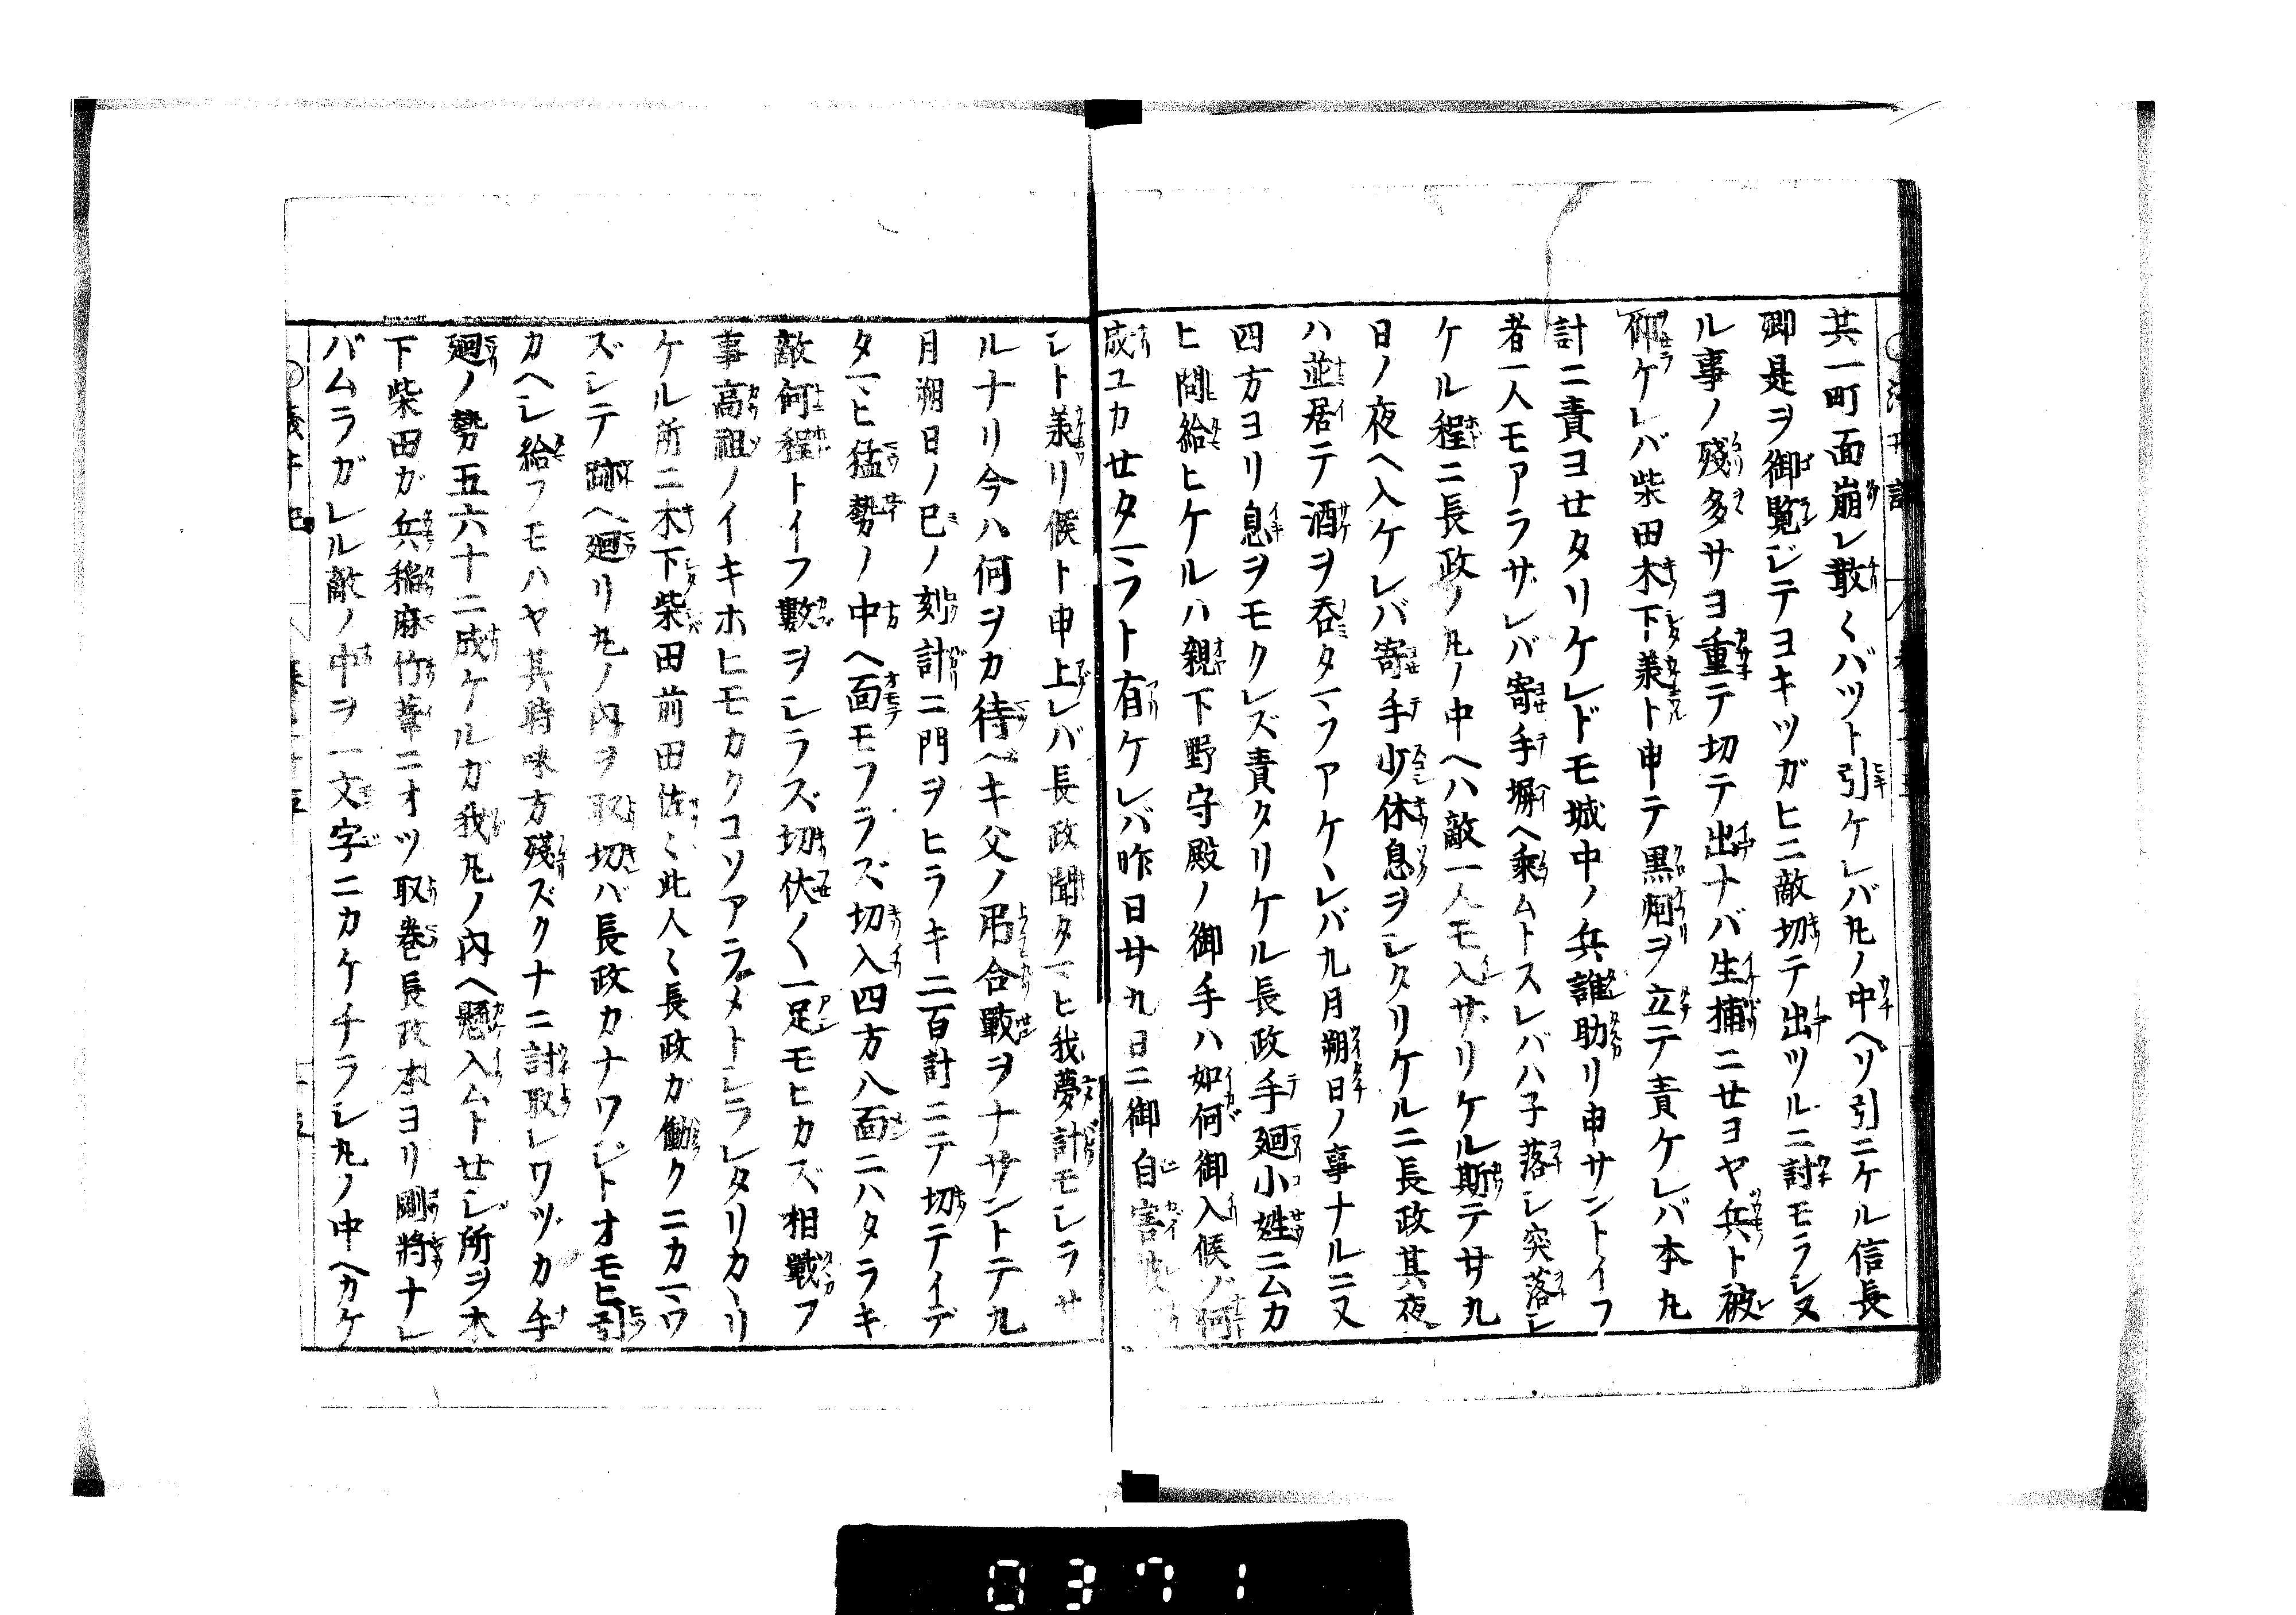 共一町面崩レ散〱バツト引ケレバ丸ノ中ヘゾ引ニケル信長
卿是ヲ御覧ジテヨキツガヒニ敵切テ出ツルニ討モラシヌ
ル事ノ残多サヨ重テ切テ出ナバ生捕ニセヨヤ兵ト被
仰ケレバ柴田木下兼ト申テ黒烟ヲ立テ責ケレバ本丸
計ニ責ヨセタリケレドモ城中ノ兵誰助リ申サントイフ
者一人モアラザレバ寄手塀ヘ乗ムトスレバハ子落シ突落シ
ケル程ニ長政ノ丸ノ中ヘハ敵一人モ入ザリケル斯テ廿九
日ノ夜ヘ入ケレバ寄手少休息ヲシタリケルニ長政其夜
ハ並居テ酒ヲ呑タマフアケヽレバ九月朔日ノ事ナルニ又
四方ヨリ息ヲモクレズ責タリケル長政手廻小姓ニムカ
ヒ問給ヒケルハ親下野守殿ノ御手ハ如何御入候ゾ何
成ユカセタマフト有ケレバ昨日廿九日ニ御自害
シト兼リ候ト申上レバ長政聞タマヒ我夢計モシラサ
ルナリ今ハ何ヲカ待ベキ父ノ吊合戰ヲナサントテ九
月朔日ノ巳ノ刻計ニ門ヲヒラキ二百計ニテ切テイデ
タマヒ猛勢ノ中ヘ面モフラズ切入四方八面ニハタラキ
敵何程トイフ數ヲシラズ切伏ノ〱一足モヒカズ相戰フ
事高祖ノイキホヒモカクコソアラメトシラレタリカヽリ
ケル所ニ木下柴田前田佐〻此人〻長政ガ働クニカマワ
ズシテ跡ヘ廻リ丸ノ内ヲ取切バ長政カナワジトオモヒ引
カヘシ給フモハヤ其時味方残ズクナニ討取レワヅカ手
廻ノ勢五六十ニ成ケルガ我丸ノ内ヘ懸入ムトセシ所ヲ木
下柴田ガ兵稲麻竹葦ニオツ取巻長政本ヨリ剛將ナレ
バムラガレル敵ノ中ヲ一文字ニカケチラシ丸ノ中ヘカケ
0371